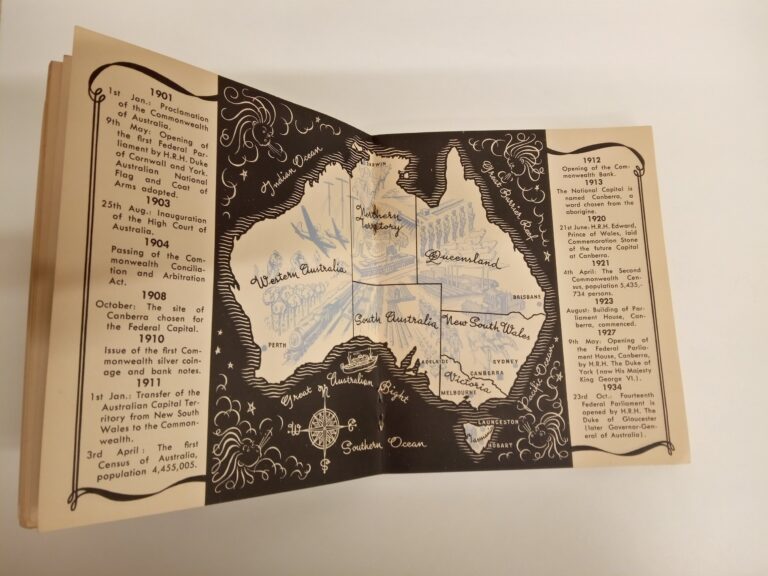 1901
1st Jan.: Proclamation
of the Commonwealth
of Australia.
9th May: Opening of
the first Federal Par-
liament by H.R.H. Duke
of Cornwall and York.
Australian National
Flag and Coat of
Arms adopted.
1903
25th Aug.: Inauguration
of the High Court of
Australia.
1904
Passing of the Com-
monwealth Concilia-
tion and Arbitration
Act.
1908
October: The site of
Canberra chosen for
the Federal Capital.
1910
Issue of the first Com-
monwealth silver coin-
age and bank notes.
1911
1st Jan.: Transfer of the
Australian Capital Ter-
ritory from New South
Wales to the Common-
wealth.
3rd April: The first
Census of Australia,
population 4,455,005.
Indian Ocean
DARWIN
Great Barrier Reef
Northern
Territory
Queensland
Western Australia
BRISBANE
South Australia
New South Wales
PERTH
ADELAIDE
SYDNEY
CANBERRA
Victoria
MELBOURNE
Great Australian Bight
Pacific Ocean
LAUNCESTON
HOBART
W
E
S
Southern Ocean
1912
Opening of the Com-
monwealth Bank.
1913
The National Capital is
named Canberra, a
word chosen from the
aborigine.
1920
21st June: H.R.H. Edward,
Prince of Wales, laid
Commemoration Stone
of the future Capital
at Canberra.
1921
4th April: The Second
Commonwealth Cen-
sus, population 5,435,-
734 persons.
1923
August: Building of Par-
liament House, Can-
berra, commenced.
1927
9th May: Opening of
the Federal Parlia-
ment House, Canberra,
by H.R.H. The Duke of
York (now His Majesty
King George VI.).
1934
23rd Oct.: Fourteenth
Federal Parliament is
opened by H.R.H. The
Duke of Gloucester
(later Governor-Gen-
eral of Australia).